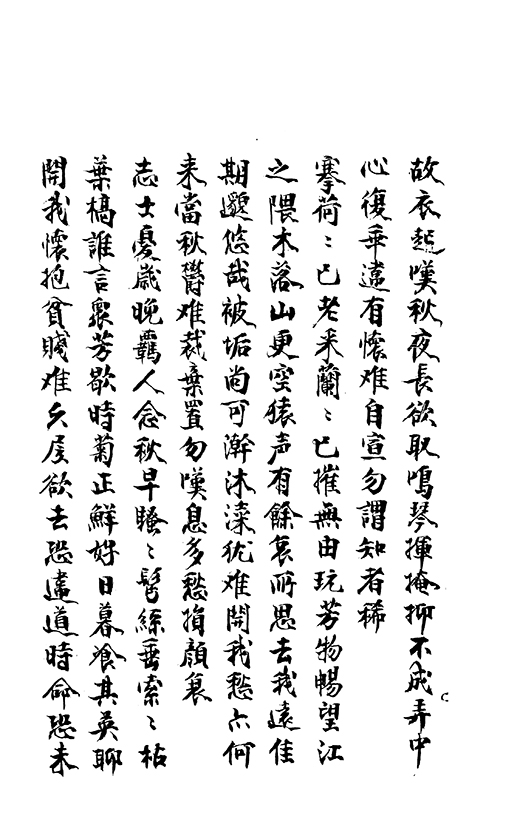 故衣起嘆秋夜長欲取鳴琴揮掩抑不成弄中
心復乖違有懷难自宣勿謂知者稀
搴荷〻已老采蘭〻已摧無由玩芳物暢望江
之隈木落山更空猿声有餘哀所思去我遠佳
期邈悠哉被垢尚可澣沐深犹难開我愁亦何
来當秋鬱难裁棄置勿嘆息多愁損顔衰
志士憂歳晚羈人念秋早騷〻鬢絲垂索〻枯
葉槁誰言衆芳歇時菊正鮮好日暮飡其英聊
開我懷抱貧賤难久居欲去恐違道時命恐未